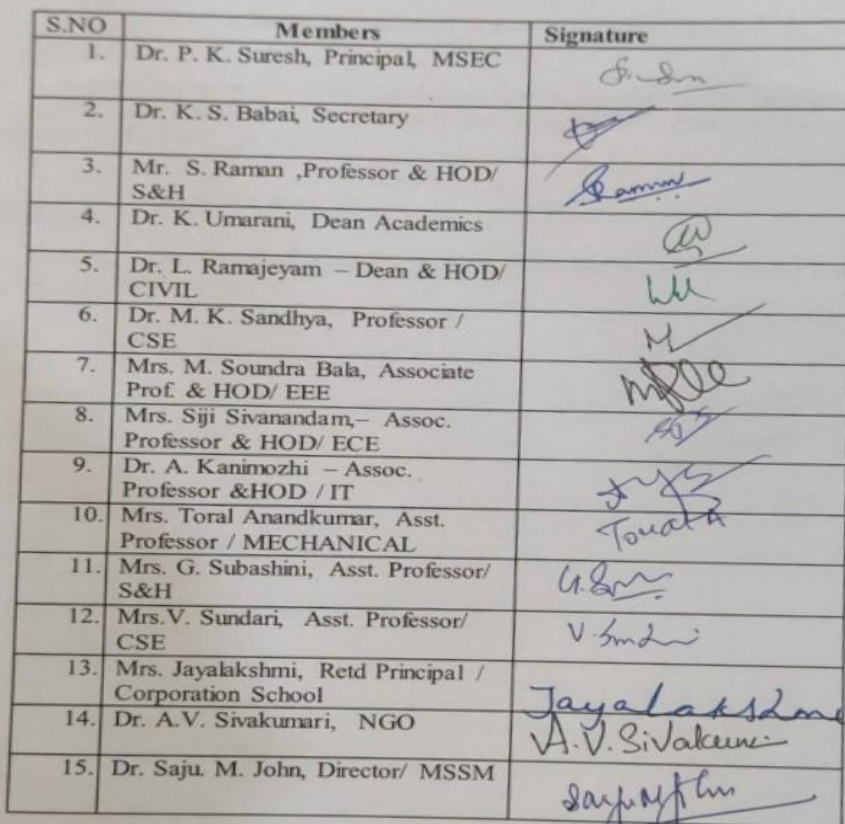 S.NO Members Signature
1. Dr. P. K. Suresh, Principal, MSEC
2. Dr. K. S. Babai, Secretary
3. Mr. S. Raman ,Professor & HOD/
S&H
4. Dr. K. Umarani, Dean Academics
5. Dr. L. Ramajeyam – Dean & HOD/
CIVIL
6. Dr. M. K. Sandhya, Professor /
CSE
7. Mrs. M. Soundra Bala, Associate
Prof. & HOD/ EEE
8. Mrs. Siji Sivanandam,– Assoc.
Professor & HOD/ ECE
9. Dr. A. Kanimozhi – Assoc.
Professor &HOD / IT
10. Mrs. Toral Anandkumar, Asst.
Professor / MECHANICAL
Toral A
11. Mrs. G. Subashini, Asst. Professor/
S&H
12. Mrs.V. Sundari, Asst. Professor/
CSE
13. Mrs. Jayalakshmi, Retd Principal /
Corporation School
Jayalakshmi
14. Dr. A.V. Sivakumari, NGO
A.V. Sivakumari
15. Dr. Saju. M. John, Director/ MSSM